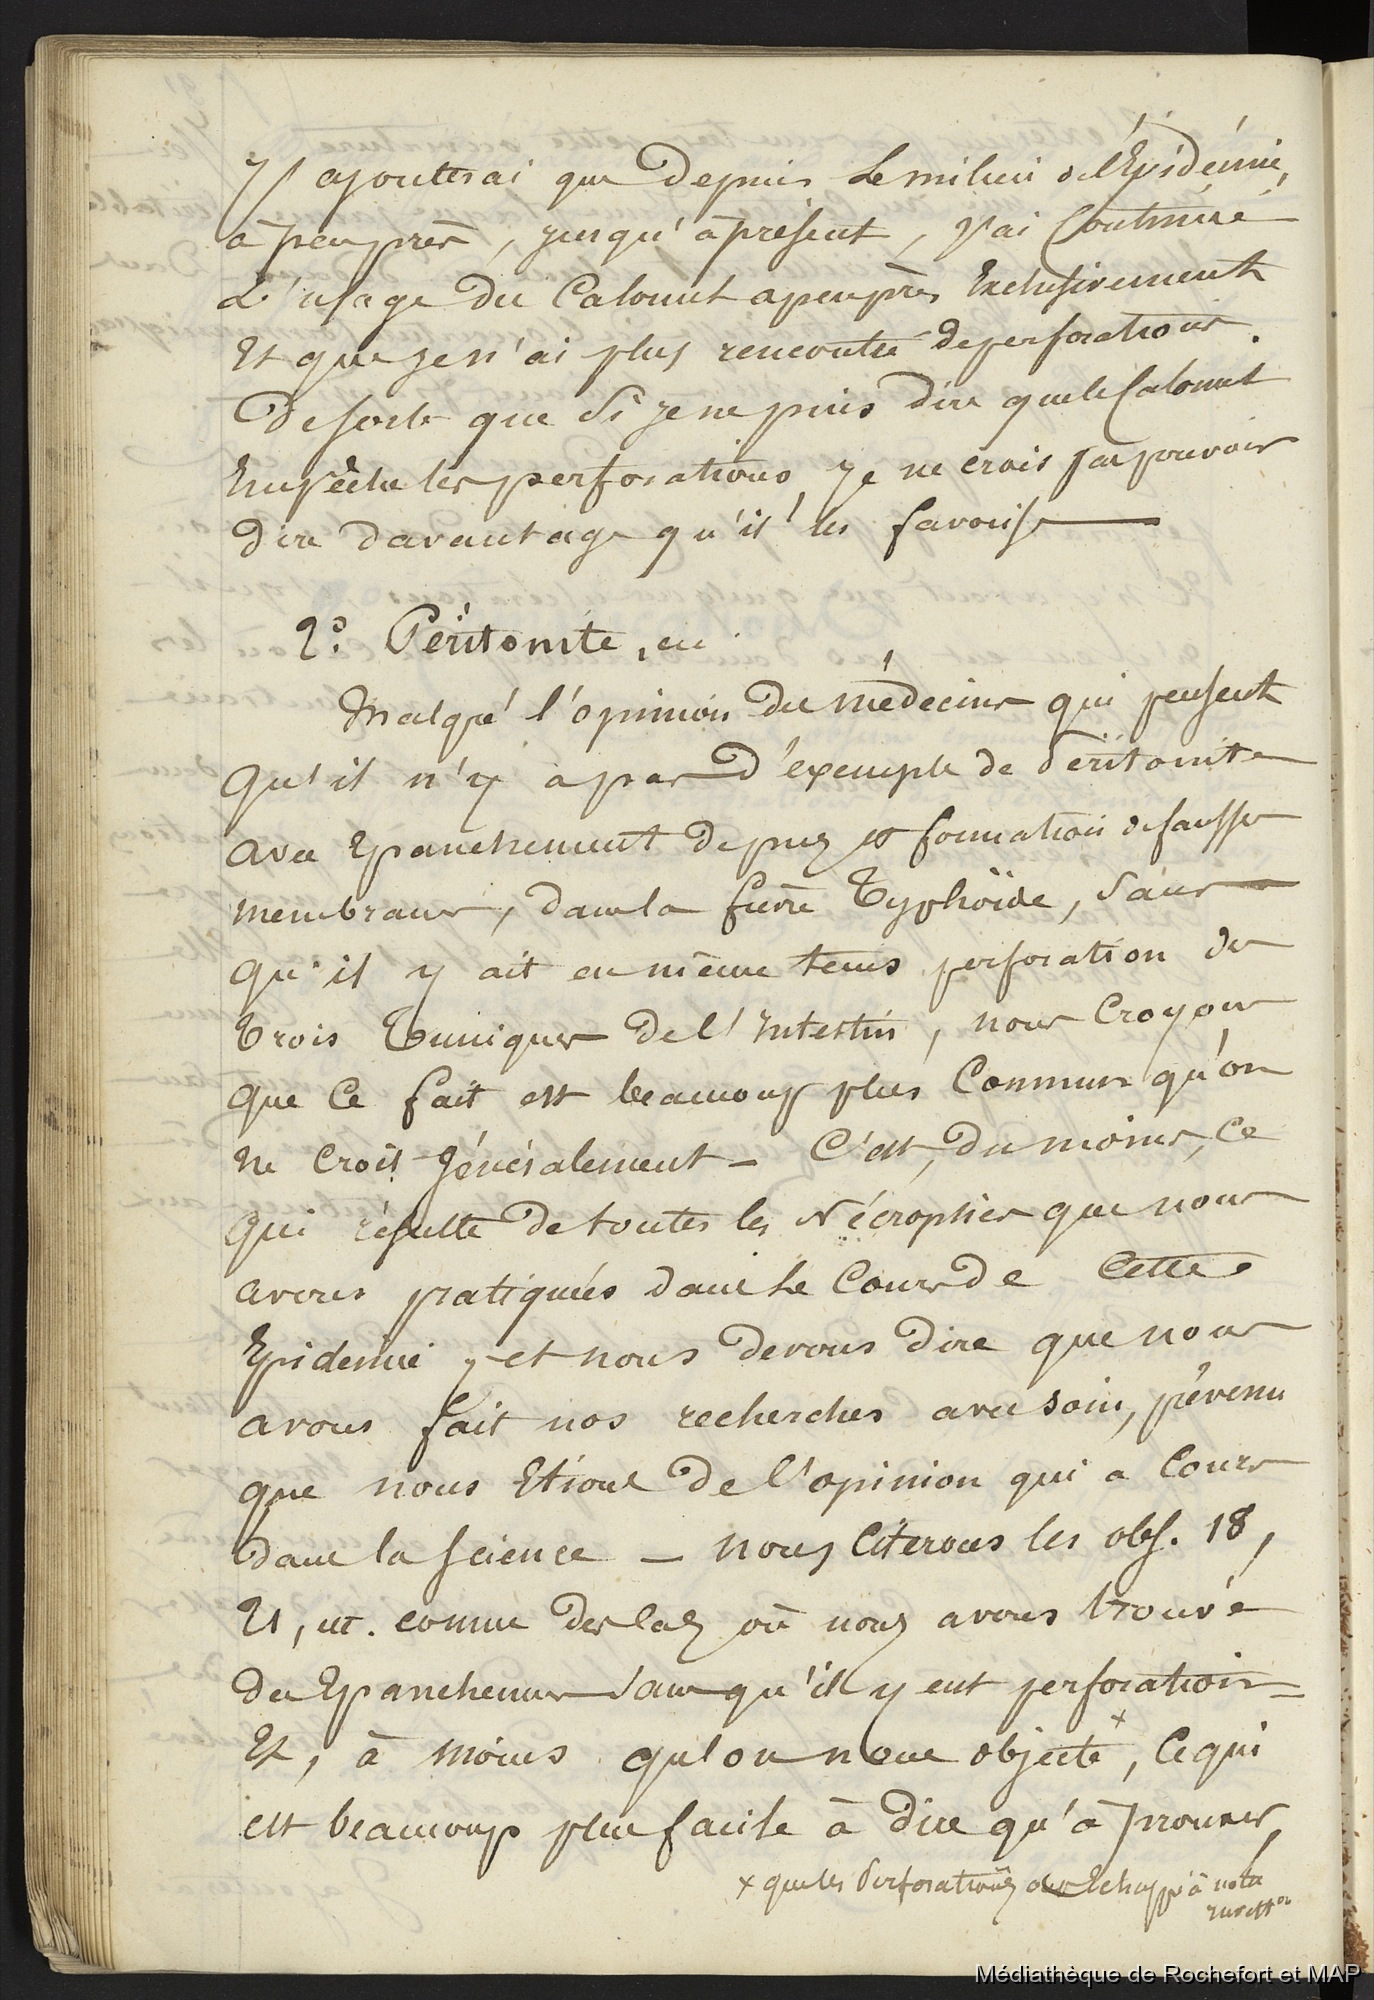 J'ajouterai que Depuis Le milieu de l'Épidémie,
à peu près, jusqu'à présent, j'ai Continué
L'usage du Calomel apeuprès Exclusivement
Et que je n'ai plus rencontré de perforations.
De sorte que Si je ne puis Dire que le Calomel
Empêche les perforations, je ne crois pas pouvoir
Dire Davantage qu'il les favorise
2º. Péritonite,
Malgré l'opinion des médecins qui pensent
Qu'il n'y a pas D'exemple de Péritonite
avec Epanchement de pus et formation de fausses
membranes, dans la fièvre Typhoïde, Sans
qu'il y ait en même tems perforation des
Trois Tuniques De l'Intestin, nous Croyons
que Ce fait est beaucoup plus Commun qu'on
ne Croit Généralement - C'est, du moins, Ce
qui résulte De toutes les Nécropsies que nous
avons pratiquées dans le Cours de Cette
Epidemie, et nous Devons Dire que nous
avons fait nos recherches avec soin, prévenu
que nous Etions De l'opinion qui a Cours
dans la Science - nous Citerons les obs. 18,
comme Des Cas où nous avons trouvé
Des Epanchemens Sans qu'il y eut perforation
Et, à moins qu'on nous objecte x, Ce qui
est beaucoup plus facile à Dire qu'à prouver,
x que les Perforations ont Echappé à notre
Médiathèque de Rochefort et MAP